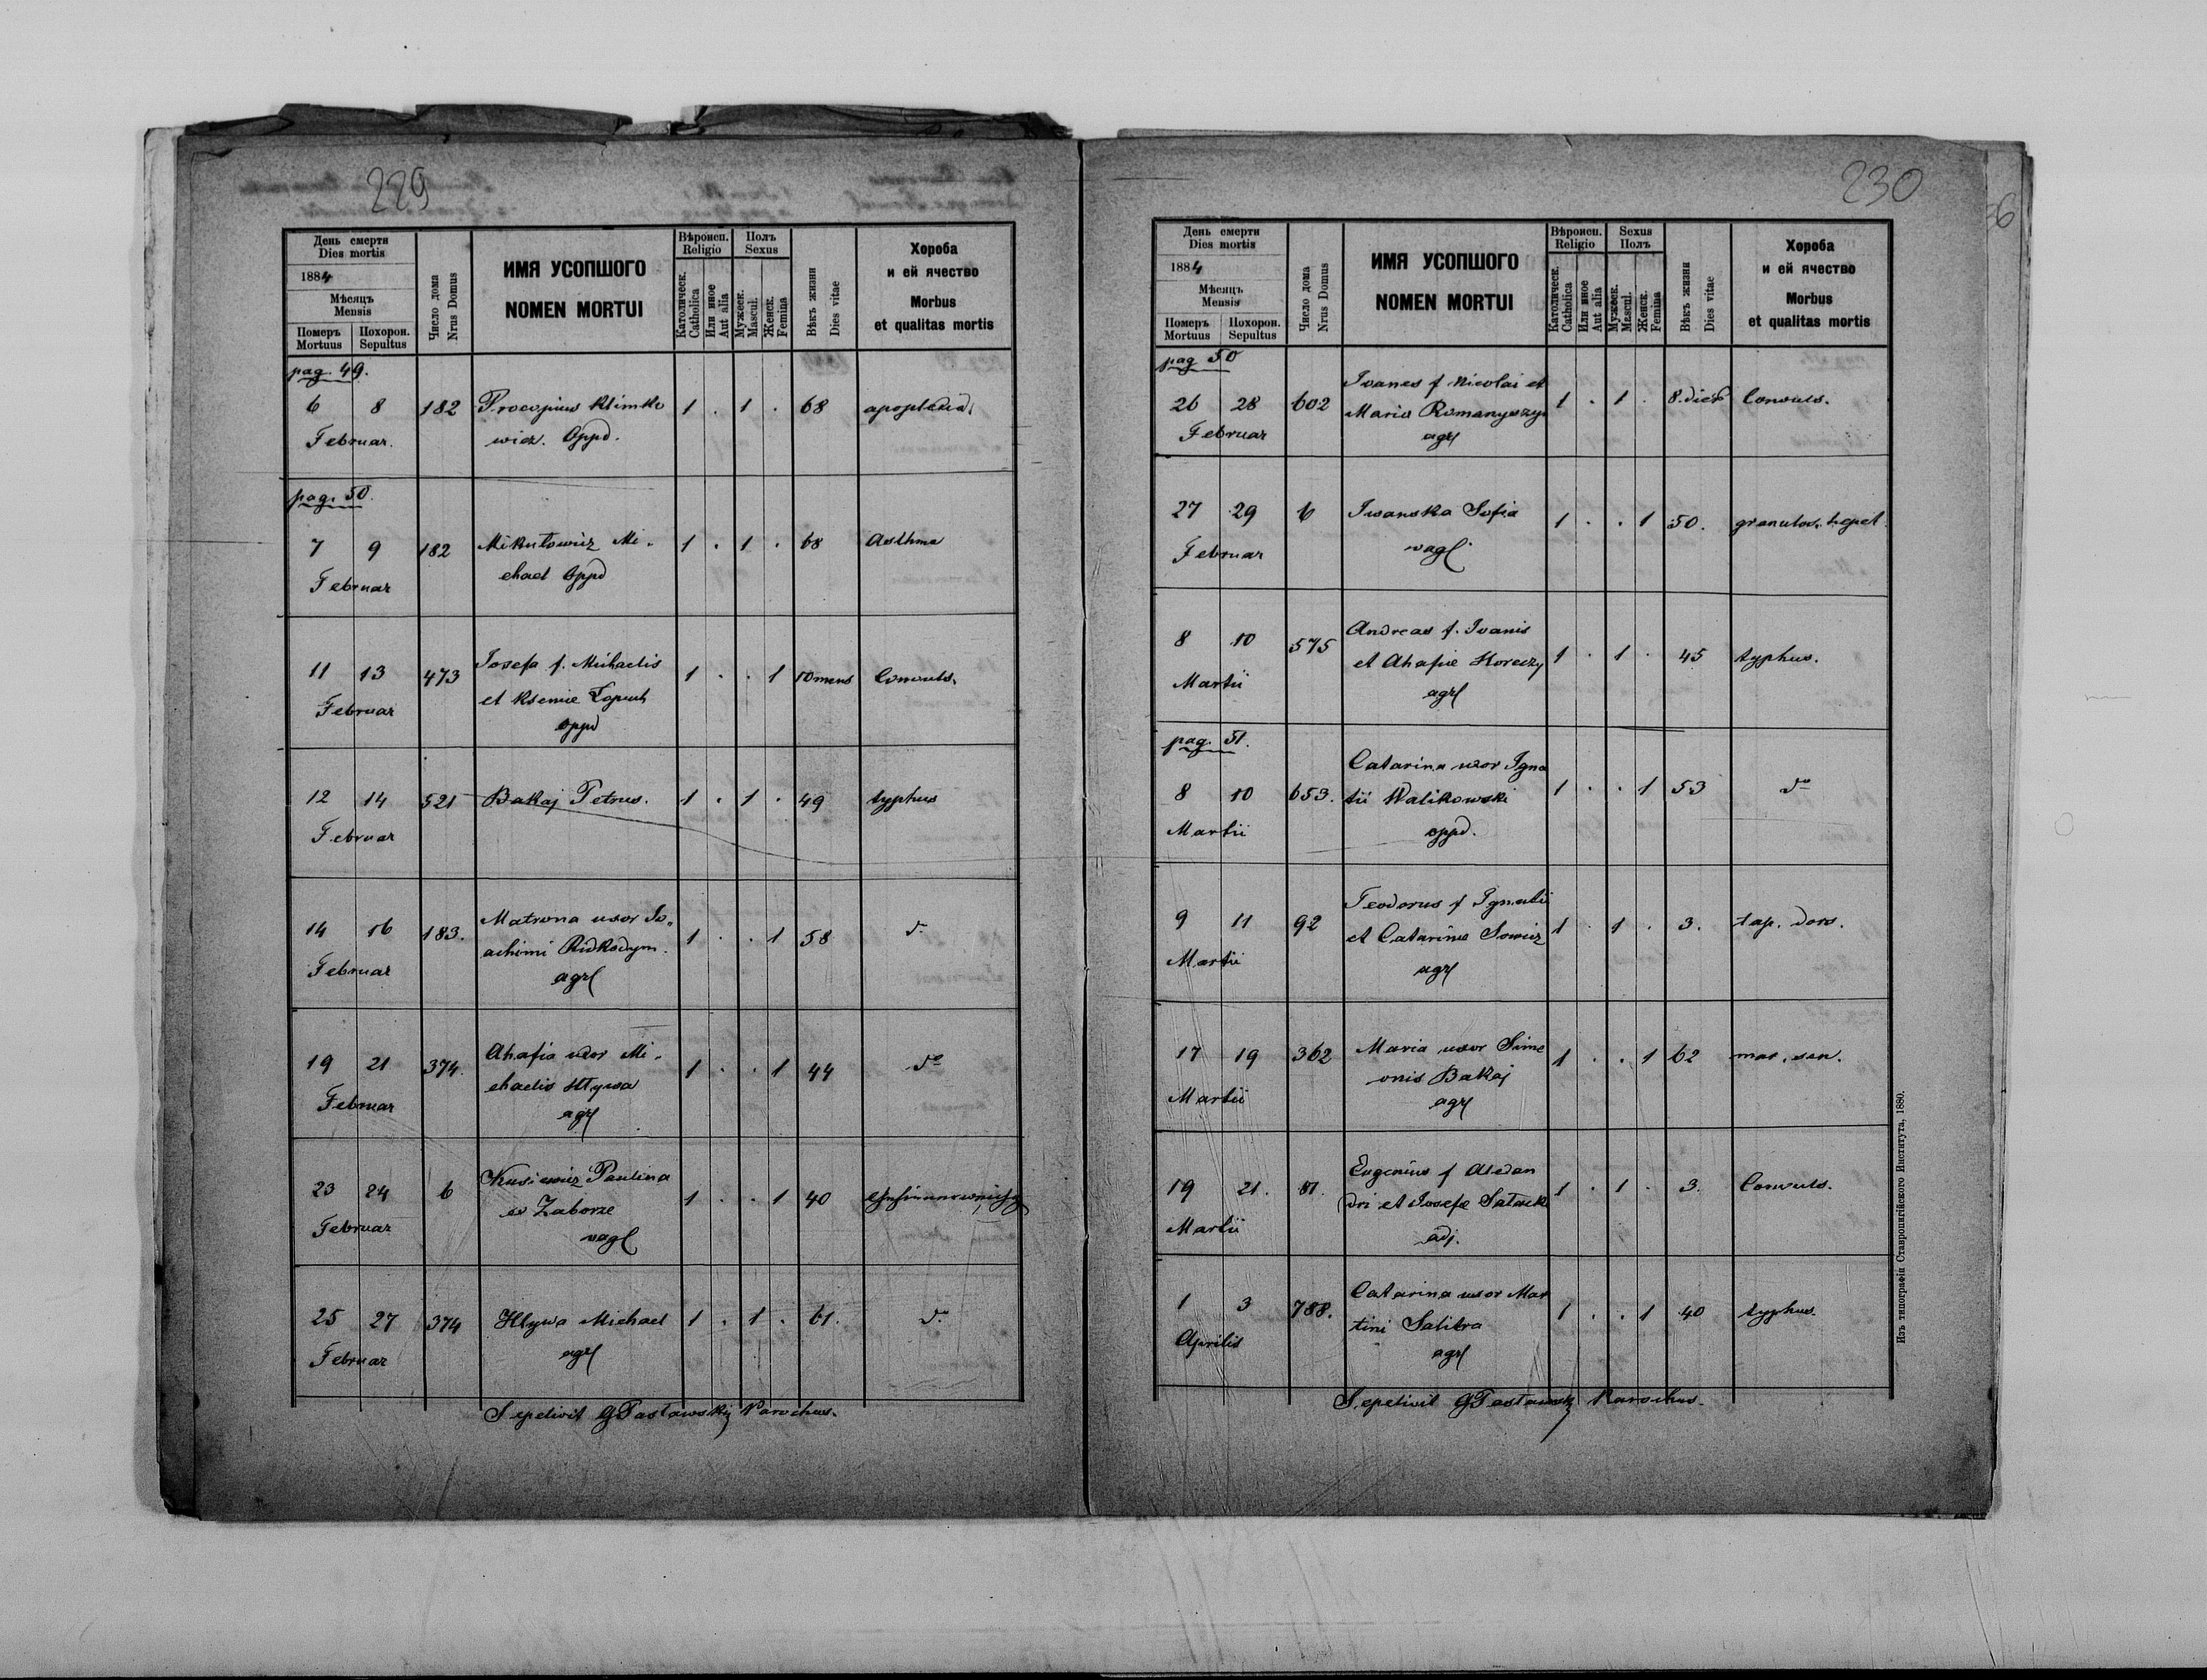 229
День смерти
Dies mortis
1884
Мѣсяцъ
Mensis
Померъ
Mortuus
Похорон.
Sepultus
Число дома
Nrus Domus
ИМЯ УСОПШОГО
NOMEN MORTUI
Вѣроисп.
Religio
Католическ.
Catholica
Или иное
Aut alia
Полъ
Sexus
Мужеск.
Mascul.
Женск.
Femina
Вѣкъ жизни
Dies vitae
Хороба
и ей ячество
Morbus
et qualitas mortis
pag. 49.
6 8 182 Procopius Klimko 1 . 1 . 68
Februar. wicz. Oppd.
pag. 50.
7 9 182 Mikułowicz Mi- 1 . 1 . 68 Asthma
Februar chael Oppd
11 13 473 Josefa f. Michaelis 1 . . 1 10 mens Convuls.
Februar et Ksenie Łopuch
oppd
12 14 521 Bakaj Petrus. 1 . 1 . 49 typhus
Februar
14 16 183. Matrona uxor Jo- 1 . . 1 58 do
Februar achimi Ridkodym.
agrl
19 21 374. Ahafia uxor Mi- 1 . . 1 44 do
Februar chaelis Hlywa
agrl
23 24 6 Kusiewicz Paulina 1 . . 1 40
Februar w Zaborze
vagl
25 27 374 Hlywa Michael 1 . 1 . 61. do
Februar agrl
Sepelivit GPasławskij Parochus.
230
День смерти
Dies mortis
1884
Мѣсяцъ
Mensis
Померъ
Mortuus
Похорон.
Sepultus
Число дома
Nrus Domus
ИМЯ УСОПШОГО
NOMEN MORTUI
Вѣроисп.
Religio
Католическ.
Catholica
Или иное
Aut alia
Sexus
Полъ
Мужеск.
Mascul.
Женск.
Femina
Вѣкъ жизни
Dies vitae
Хороба
и ей ячество
Morbus
et qualitas mortis
pag 50
Ivanes f Nicolai et
26 28 602 Maria Romanyszyn 1 . 1 . 8. dies Convuls.
Februar agrl
27 29 6 Iwanska Sofia 1 . . 1 50. granulos. hepat
Februar vagl
8 10 575 Andreas f. Ivanis
et Ahafie Horeczy 1 . 1 . 45 typhus.
Martii agrl
pag. 51.
Catarina uxor Igna
8 10 653. tii Walikowski 1 . . 1 53 do
Martii oppd.
Teodorus f Ignatii
9 11 92 et Catarine Sowicz 1 . 1 . 3. tap. dors.
Martii agrl
17 19 362 Maria uxor Sime 1 . . 1 62 mar. sen.
Martii onis Bakaj
agrl
Eugenius f Alexan
19 21. 81. dri et Josefe 1 . 1 . 3. Convuls.
Martii adj.
Catarina uxor Mar
1 3 788. tini Salitra 1 . . 1 40 typhus.
Aprilis agrl
Sepelivit GPasławskij Parochus.
Изъ типографіи Ставропигійского Института, 1880.
6